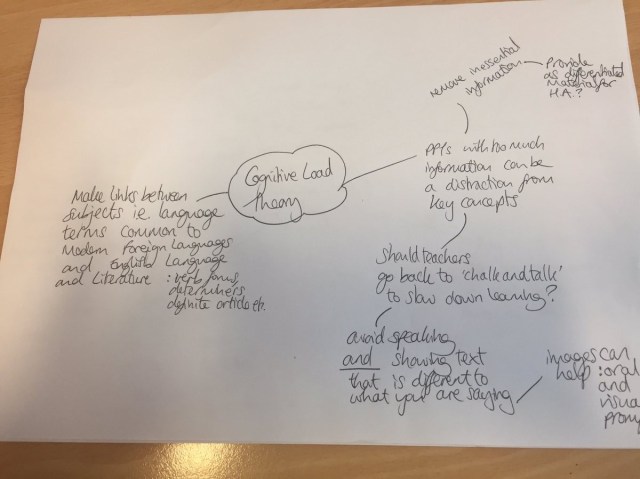 Cognitive Load
Theory
Make links between
subjects ie. language
terms common to
Modern Foreign Languages
and English Language
and Literature : verb forms,
determiners,
definite article etc.
PPTs with too much
information can be
a distraction from
key concepts
remove inessential
information
Provide
as differentiated
material for
H.A.?
Should teachers
go back to 'chalk and talk'
to slow down learning?
avoid speaking
and showing text
that is different to
what you are saying
images can
help : oral
and
visua
promp